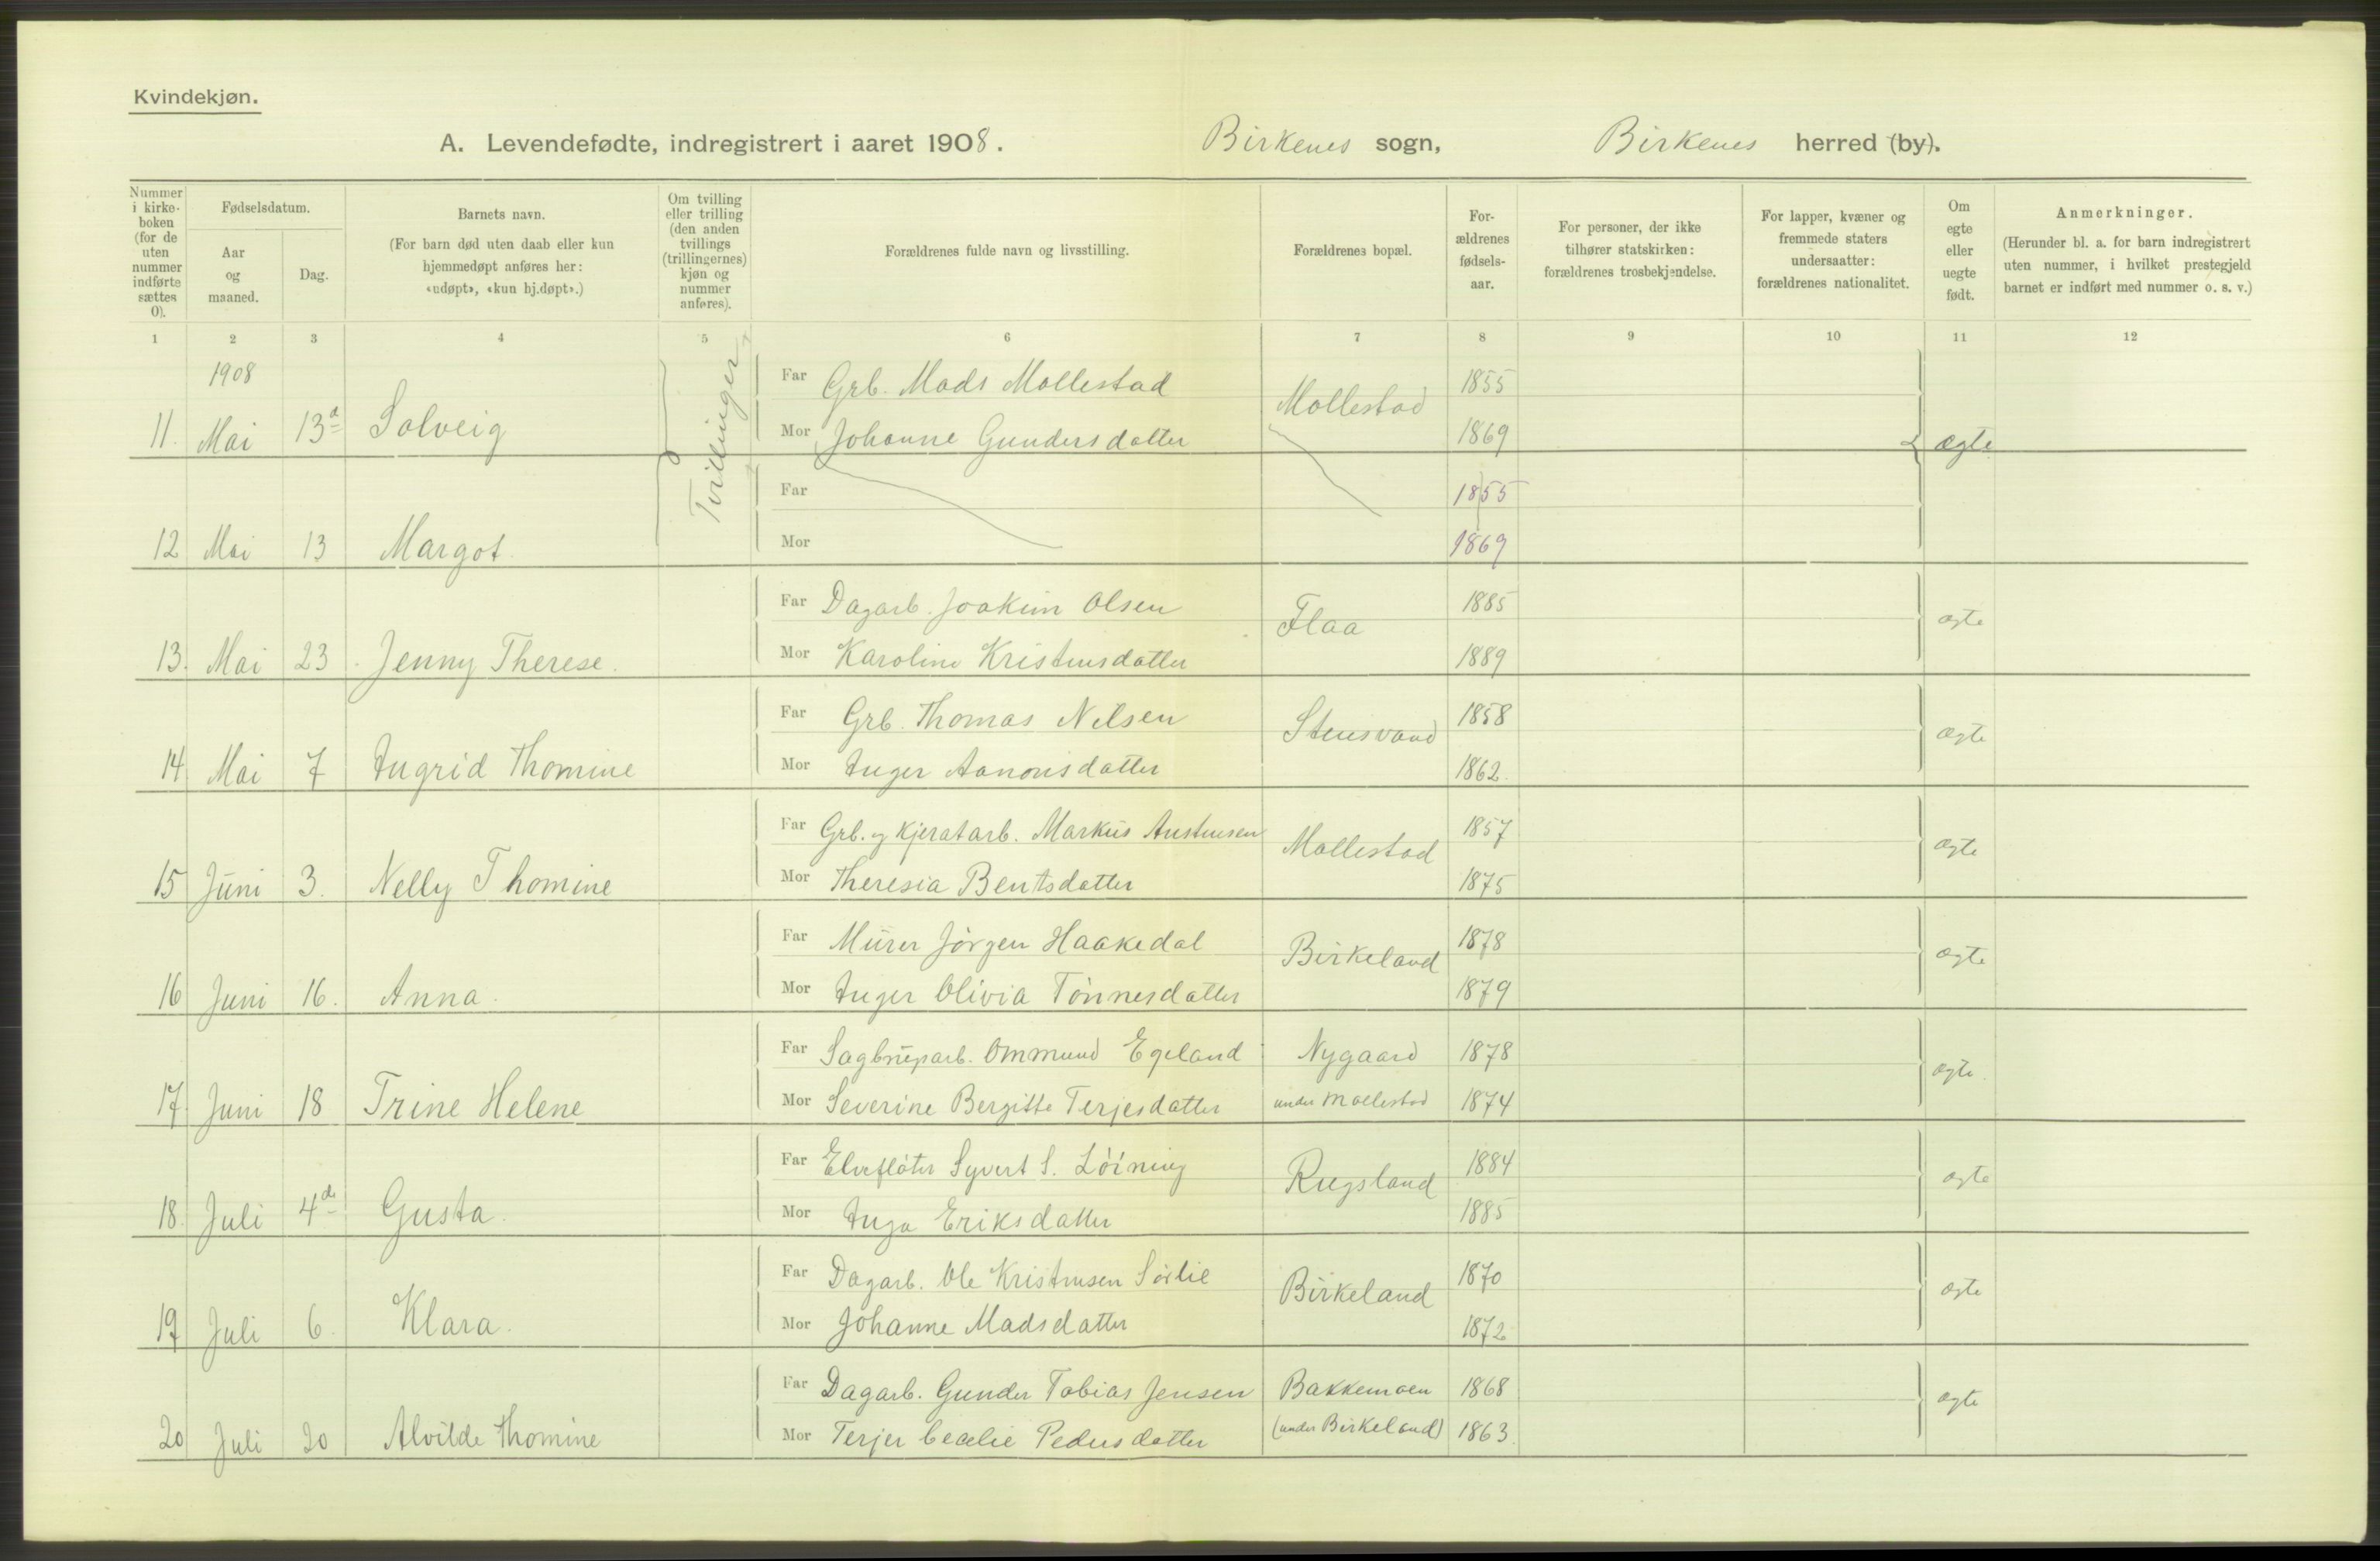 Kvindekjøn.
A. Levendefødte, indregistrert i aaret 1908. Birkenes sogn, Birkenes herred (by).
Nummer i kirkeboken (for de uten nummer indførte sættes 0).
Fødselsdatum.
Aar og maaned.
Dag.
Barnets navn.
(For barn død uten daab eller kun hjemmedøpt anføres her: «udøpt», «kun hj.døpt».)
Om tvilling eller trilling (den anden tvillings (trillingernes) kjøn og nummer anføres).
Forældrenes fulde navn og livsstilling.
Forældrenes bopæl.
Forældrenes fødselsaar.
For personer, der ikke tilhører statskirken: forældrenes trosbekjendelse.
For lapper, kvæner og fremmede staters undersaatter: forældrenes nationalitet.
Om egte eller uegte født.
Anmerkninger.
(Herunder bl. a. for barn indregistrert uten nummer, i hvilket prestegjeld barnet er indført med nummer o. s. v.)
1 2 3 4 5 6 7 8 9 10 11 12
1908
Far Grb. Mads Mollestad Mollestad 1855
11. Mai 13d Solveig Tvillinger Mor Johanne Gundersdatter 1869 ægte
Far 1855
12 Mai 13 Margot. Mor 1869
Far Dagarb. Joakim Olsen Flaa 1885 ægte
13. Mai 23 Jenny Therese. Mor Karoline Kristensdatter 1889
Far Grb. Thomas Nilsen Stensvand 1858 ægte
14 Mai 7 Ingrid Thomine Mor Inger Aanonsdatter 1862.
Far Grb. og Kjeratarb. Markus Austensen Mollestad 1857 ægte
15 Juni 3. Nelly Thomine Mor Theresia Bentsdatter 1875
Far Murer Jörgen Haakedal Birkeland 1878 ægte
16 Juni 16. Anna. Mor Inger Olivia Tönnesdatter 1879
Far Sagbrugsarb. Ommund Egeland Nygaard 1878 ægte
17. Juni 18 Trine Helene Mor Severine Bergitte Terjesdatter under Mollestad 1874
Far Elvefløter Syvert S. Löining Rugsland 1884 ægte
18. Juli 4d Gusta. Mor Inga Eriksdatter 1885
Far Dagarb. Ole Kristensen Sörlie Birkeland 1870 ægte
19 Juli 6. Klara. Mor Johanne Madsdatter 1872
Far Dagarb. Gunder Tobias Jensen Bakkemoen 1868 ægte
20 Juli 20 Alvilde Thomine Mor Terjer Cecelie Pedersdatter (under Birkeland) 1863.